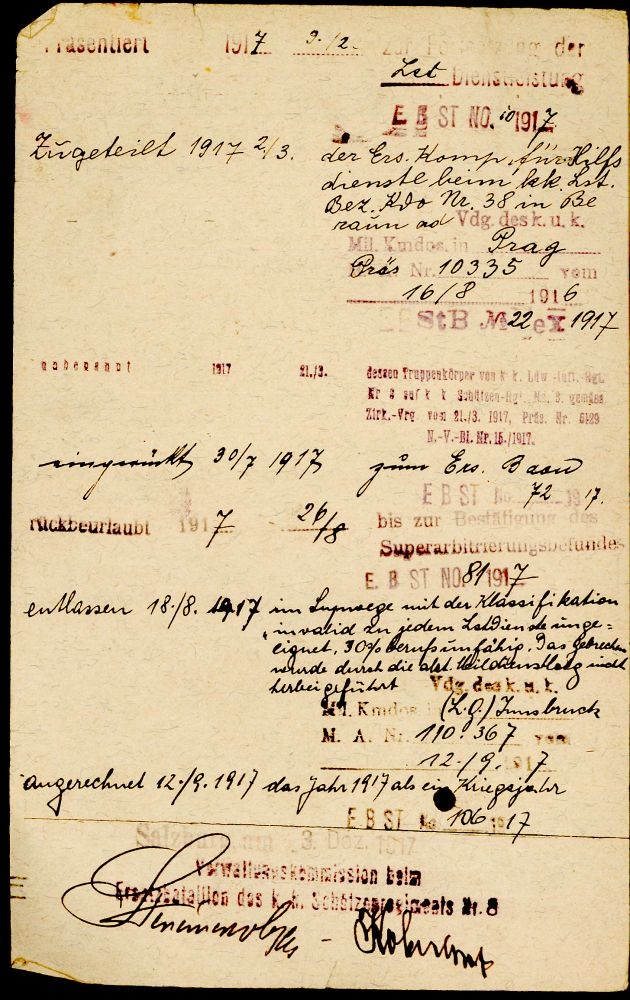 Präsentiert 1917 9./2. zur Fortsetzung der
Lst Dienstleistung
E B ST NO. 10 1917
Zugeteilt 1917 2/3. der Ers. Komp. für Hilfs
dienstl beim kk. Lst.
Bez. Kdo Nr. 38 in Be
raun ad Vdg. des k. u. k.
Mil. Kmdos. in Prag
Präs Nr. 10335 vom
16/8 1916
StB 22 ex 1917
umbenannt 1917 21./3. dessen Truppenkörper von k. k. Ldw.-Inft.-Rgt.
Nr 8 auf k k Schützen-Rgt. No. 8 gemäss
Zirk.-Vrg vom 21./3. 1917, Präs. Nr. 6129
N.-V.-Bl. Nr. 15./1917.
eingerückt 30/7 1917 zum Ers. Baon
E B ST No. 72 1917.
rückbeurlaubt 1917 26/8 bis zur Bestätigung des
Superarbitrierungsbefundes
E. B ST NO 81 1917
entlassen 18./8. 1917 im Supwege mit der Klassifikation
"invalid zu jedem Lstdienste unge=
eignet, 30% berufsunfähig. Das Gebrechen
wurde durch die akt. Mildienstltg nicht
herbeigeführt Vdg. des k. u. k.
Mil. Kmdos in (L.G.) Innsbruck
M. A. Nr. 110.367 vom
12./9. 1917
angerechnet 12./9. 1917 das Jahr 1917 als ein Kriegsjahr
E B ST No 106 1917
Salzburg, am 3. Dez. 1917
Verwaltungskommission beim
Ersatzbataillon des k. k. Schützenregiments Nr. 8